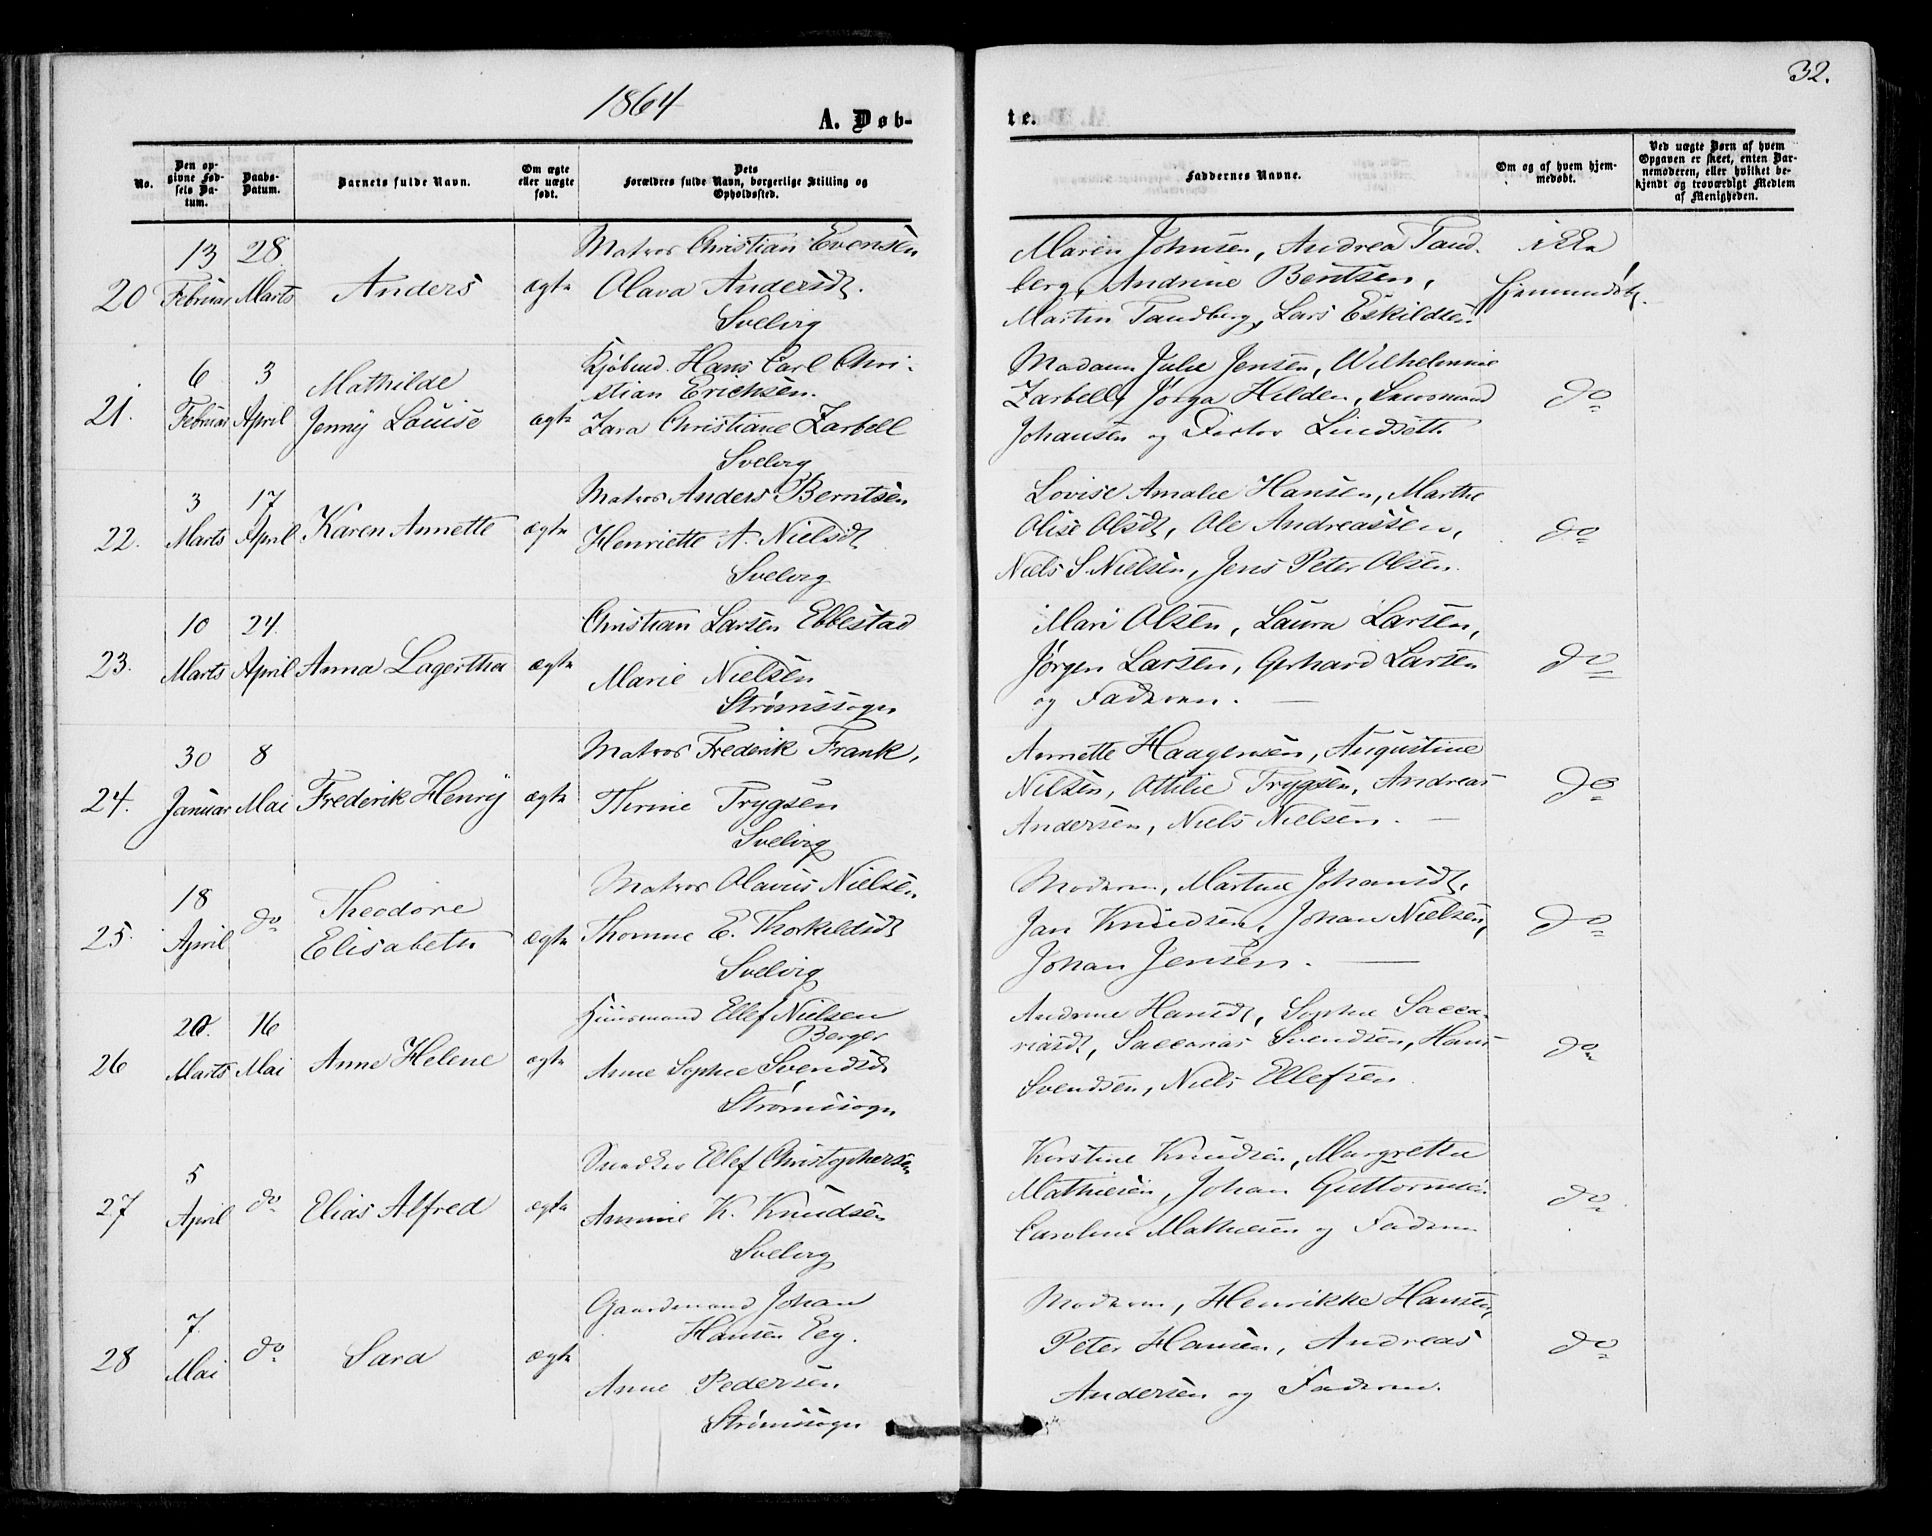 1864
32.
A. Døb-
te.
No.
Den op-
givne Fød-
sels Da-
tum.
Daabs-
Datum.
Barnets fulde Navn.
Om ægte
eller uægte
født.
Dets
Forældres fulde Navn, borgerlige Stilling og
Opholdssted.
Faddernes Navne.
Om og af hvem hjem-
medøbt.
Ved uægte Børn af hvem
Opgaven er skeet, enten Bar-
nemoderen, eller hvilket be-
kjendt og troværdigt Medlem
af Menigheden.
20
13
Februar
28
Marts
Anders
ægte
Matros Christian Evensen
Olava Andersdt.
Svelvig
Maren Johnsen, Andrea Tand-
berg, Andrine Berntsen,
Martin Tandberg, Lars Eskildsen
ikke
hjemmedøbt.
21.
6
Februar
3
April
Mathilde
Jenny Louise
ægte
Kjøbmd. Hans Carl Chri-
stian Erichsen.
Zara Christiane Zarbell
Svelvig
Madam Julie Jensen, Wilhelmine
Zarbell, Jørga Hilden,
Johansen og Lindseth
do
22.
3
Marts
17
April
Karen Annette
ægte
Matros Anders Berntsen
Henriette A. Nielsdt
Svelvig
Lovise Amalie Hansen, Marthe
Olise Olsdt, Ole Andreassen,
Niels S. Nielsen, Jens Peter Olsen.
do
23.
10
Marts
24
April
Anna Lagertha
ægte
Christian Larsen Ebbestad
Marie Nielsen
Strømssogn
Mari Olsen, Laura Larsen,
Jørgen Larsen, Gerhard Larsen
og Faderen. —
do
24.
30
Januar
8
Mai
Frederik Henrij
ægte
Matros Frederik Frank,
Thrine Trygsen
Svelvig
Annette Haagensen, Augustine
Nilsen, Ottilie Trygsen, Andreas
Andersen, Niels Nielsen. —
do
25.
18
April
do
Theodore
Elisabeth
ægte
Matros Olavus Nielsen,
Thomine E. Thorkildsdt
Svelvig
Moderen, Martine Johansdt,
Jan Knudsen, Johan Nielsen,
Johan Jensen. —
do
26
20.
Marts
16
Mai
Anne Helene
ægte
Huusmand Ellef Nielsen
Berger
Anne Sophie Svendsdt
Strømssogn
Andrine Hansdt, Sophie Sacca-
riasdt, Saccarias Svendsen, Hans
Svendsen, Niels Ellefsen.
do
27
5
April
do
Elias Alfred
ægte
Snedker Ellef Christophersen
Annine K. Knudsen
Svelvig
Kirstine Knudsen, Margrethe
Mathiesen, Johan Guttormsen
Caroline Mathiesen og Faderen
do
28
7.
Mai
do
Sara
ægte
Gaardmand Johan
Hansen Eeg.
Anne Pedersen
Strømssogn
Moderen, Henrikke Hansen,
Peter Hansen, Andreas
Andersen og Faderen.
do